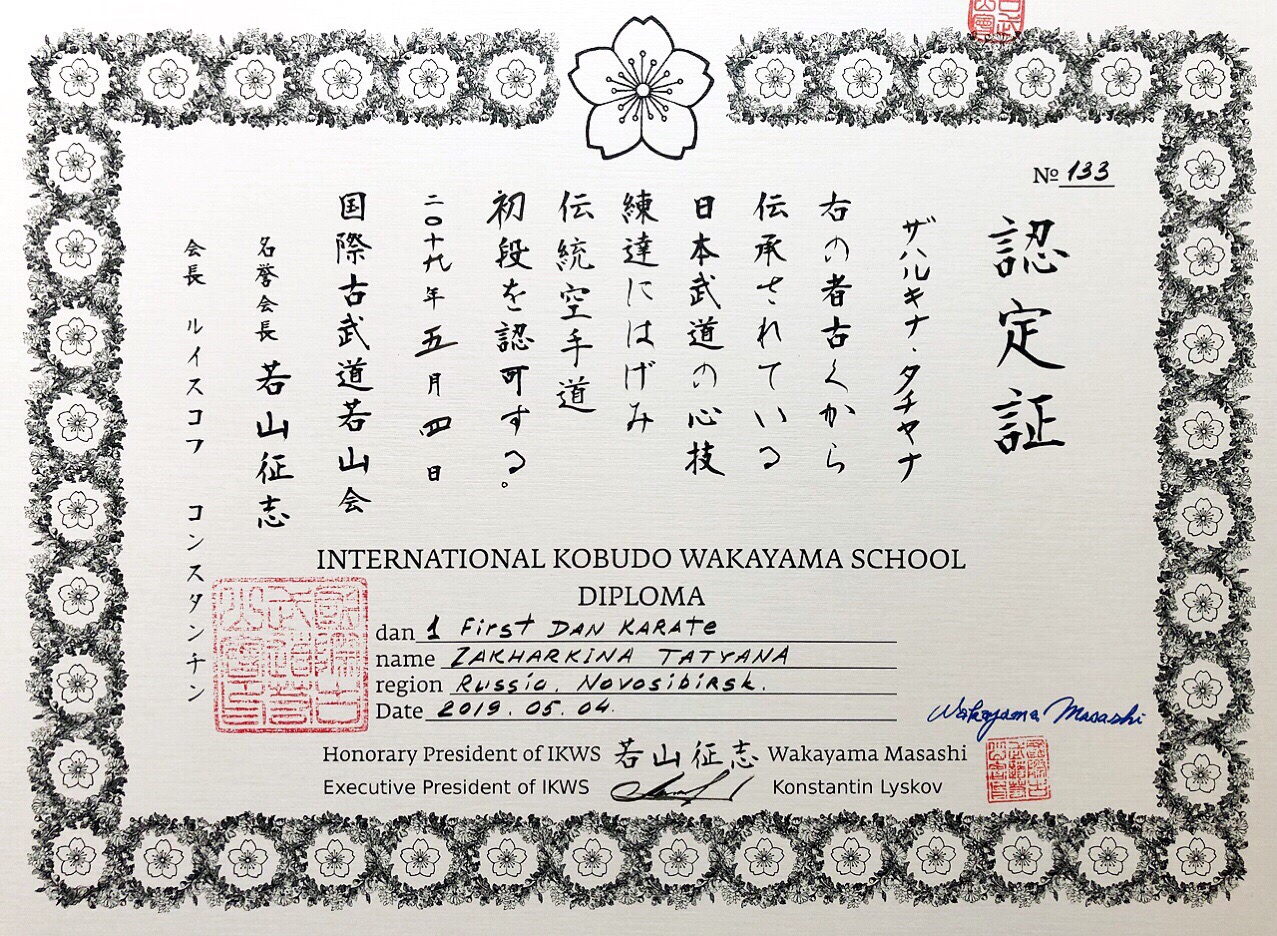 № 133
認定証
ザハルキナ・タチヤナ
右の者古くから
伝承されている
日本武道の心技
練達にはげみ
伝統空手道
初段を認可する。
二〇十九年五月四日
国際古武道若山会
名誉会長 若山征志
会長 ルイスコフ コンスタンチン
INTERNATIONAL KOBUDO WAKAYAMA SCHOOL
DIPLOMA
dan 1 First DAN KARATE
name ZAKHARKINA TATYANA
region Russia. Novosibirsk.
Date 2019.05.04.
Wakayama Masashi
Honorary President of IKWS 若山征志 Wakayama Masashi
Executive President of IKWS Konstantin Lyskov